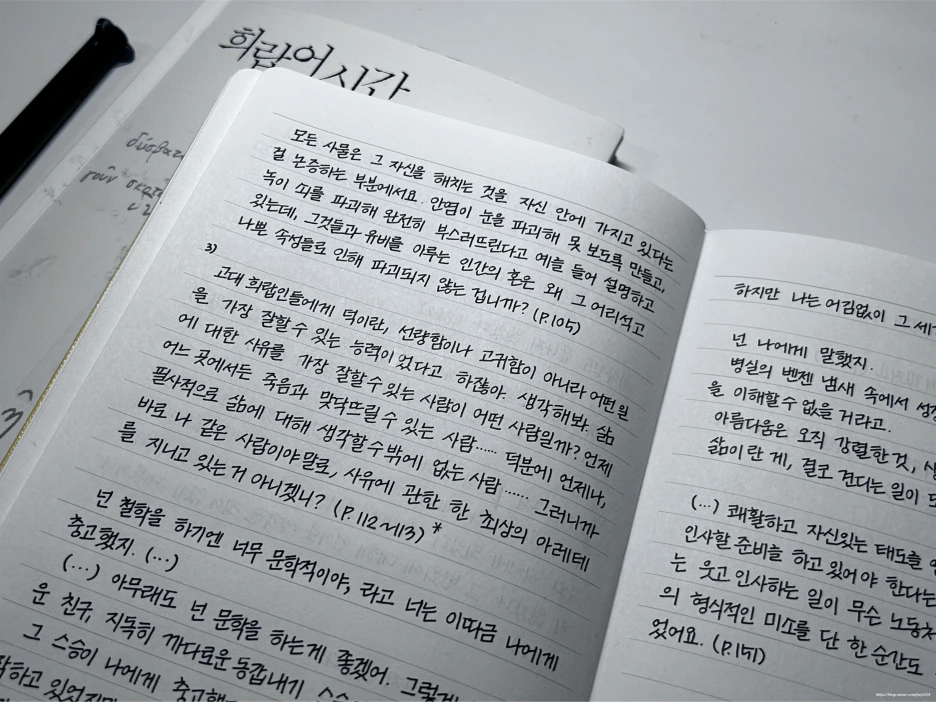 희랍어 시간
δύσβατ
γοῦν σκατ
모든 사물은 그 자신을 해치는 것을 자신 안에 가지고 있다는
걸 논증하는 부분에서요. 안염이 눈을 파괴해 못 보도록 만들고,
녹이 쇠를 파괴해 완전히 부스러뜨린다고 예를 들어 설명하고
있는데, 그것들과 유비를 이루는 인간의 혼은 왜 그 어리석고
나쁜 속성들로 인해 파괴되지 않는 겁니까? (P.105)
3)
고대 희랍인들에게 덕이란, 선량함이나 고귀함이 아니라 어떤 일
을 가장 잘할 수 있는 능력이었다고 하잖아. 생각해봐. 삶
에 대한 사유를 가장 잘할 수 있는 사람이 어떤 사람일까? 언제
어느 곳에서든 죽음과 맞닥뜨릴 수 있는 사람…… 덕분에 언제나,
필사적으로 삶에 대해 생각할 수밖에 없는 사람…… 그러니까
바로 나 같은 사람이야말로, 사유에 관한 한 최상의 아레테
를 지니고 있는 거 아니겠니? (P.112~113)*
넌 철학을 하기엔 너무 문학적이야, 라고 너는 이따금 나에게
충고했지. (…)
(…) 아무래도 넌 문학을 하는게 좋겠어. 그렇게
운 친구, 지독히 까다로운 동갑내기 스승
그 스승이 나에게 충고했
하고 있었지만
하지만 나는 어김없이 그 세
넌 나에게 말했지.
병실의 벤젠 냄새 속에서 성장
을 이해할 수 없을 거라고.
아름다움은 오직 강렬한 것,
삶이란 게, 결코 견디는 일이
(…) 쾌활하고 자신있는 태도를
인사할 준비를 하고 있어야 한다는
는 웃고 인사하는 일이 무슨 노동처
의 형식적인 미소를 단 한 순간도
었어요. (P.151)